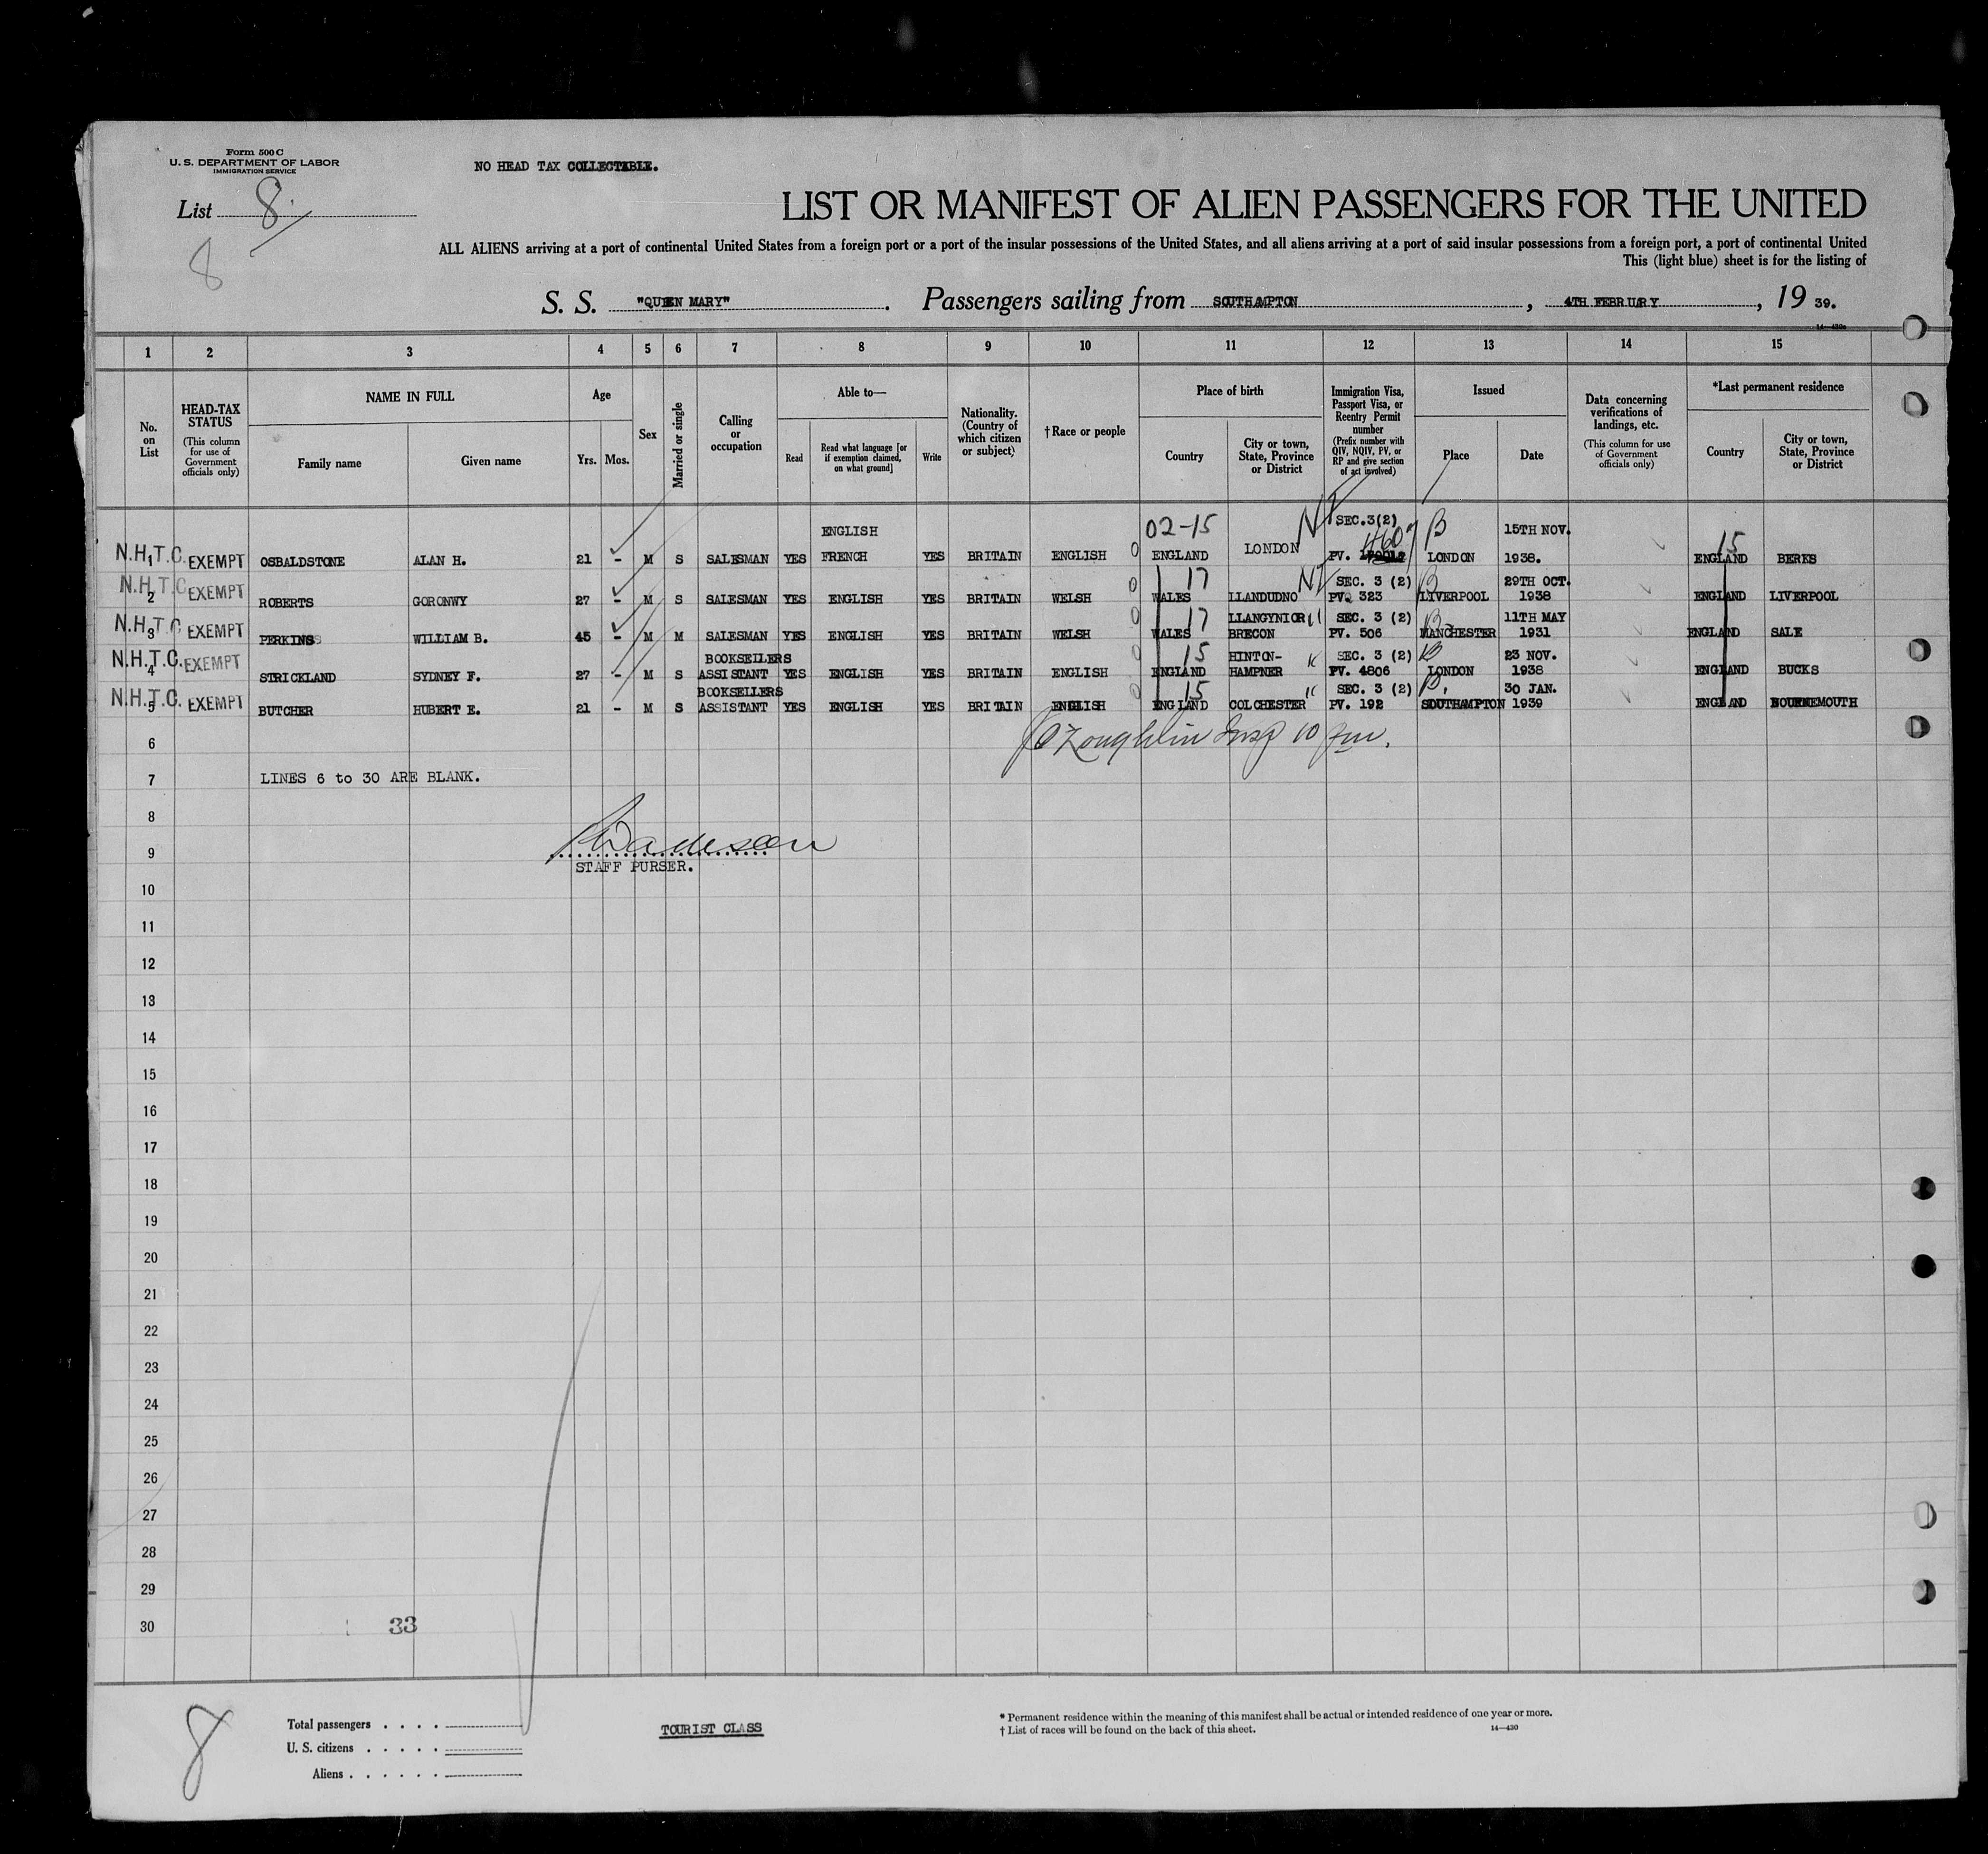 Form 500 C
U. S. DEPARTMENT OF LABOR
IMMIGRATION SERVICE
NO HEAD TAX COLLECTABLE.
List 8
8
LIST OR MANIFEST OF ALIEN PASSENGERS FOR THE UNITED
ALL ALIENS arriving at a port of continental United States from a foreign port or a port of the insular possessions of the United States, and all aliens arriving at a port of said insular possessions from a foreign port, a port of continental United
This (light blue) sheet is for the listing of
S. S. "QUEEN MARY". Passengers sailing from SOUTHAMPTON, 4TH FEBRUARY, 19 39.
14—430a
1 2 3 4 5 6 7 8 9 10 11 12 13 14 15
No. on List
HEAD-TAX STATUS (This column for use of Government officials only)
NAME IN FULL
Family name Given name
Age
Yrs. Mos.
Sex
Married or single
Calling or occupation
Able to—
Read Read what language [or if exemption claimed, on what ground] Write
Nationality. (Country of which citizen or subject)
† Race or people
Place of birth
Country City or town, State, Province or District
Immigration Visa, Passport Visa, or Reentry Permit number (Prefix number with QIV, NQIV, PV, or RP and give section of act involved)
Issued
Place Date
Data concerning verifications of landings, etc. (This column for use of Government officials only)
*Last permanent residence
Country City or town, State, Province or District
ENGLISH 02-15 SEC.3(2) B 15TH NOV. 15
N.H.T.C. 1 EXEMPT OSBALDSTONE ALAN H. 21 - M S SALESMAN YES FRENCH YES BRITAIN ENGLISH 0 ENGLAND LONDON PV. 4607 LONDON 1938. ENGLAND BERKS
17 SEC. 3 (2) B 29TH OCT.
N.H.T.C 2 EXEMPT ROBERTS GORONWY 27 - M S SALESMAN YES ENGLISH YES BRITAIN WELSH 0 WALES LLANDUDNO PV. 323 LIVERPOOL 1938 ENGLAND LIVERPOOL
17 LLANGYNIOR SEC. 3 (2) B 11TH MAY
N.H.T.C 3 EXEMPT PERKINS WILLIAM B. 45 - M M SALESMAN YES ENGLISH YES BRITAIN WELSH 0 WALES BRECON PV. 506 MANCHESTER 1931 ENGLAND SALE
BOOKSELLERS 15 HINTON- SEC. 3 (2) B 23 NOV.
N.H.T.C. 4 EXEMPT STRICKLAND SYDNEY F. 27 - M S ASSISTANT YES ENGLISH YES BRITAIN ENGLISH 0 ENGLAND HAMPNER PV. 4806 LONDON 1938 ENGLAND BUCKS
BOOKSELLERS 15 SEC. 3 (2) B 30 JAN.
N.H.T.C. 5 EXEMPT BUTCHER HUBERT E. 21 - M S ASSISTANT YES ENGLISH YES BRITAIN ENGLISH 0 ENGLAND COLCHESTER PV. 192 SOUTHAMPTON 1939 ENGLAND BOURNEMOUTH
6
7 LINES 6 to 30 ARE BLANK.
8
9
STAFF PURSER.
10
11
12
13
14
15
16
17
18
19
20
21
22
23
24
25
26
27
28
29
30 33
8
Total passengers . . . .
U. S. citizens . . . . .
Aliens . . . . . .
TOURIST CLASS
* Permanent residence within the meaning of this manifest shall be actual or intended residence of one year or more.
† List of races will be found on the back of this sheet.
14—430